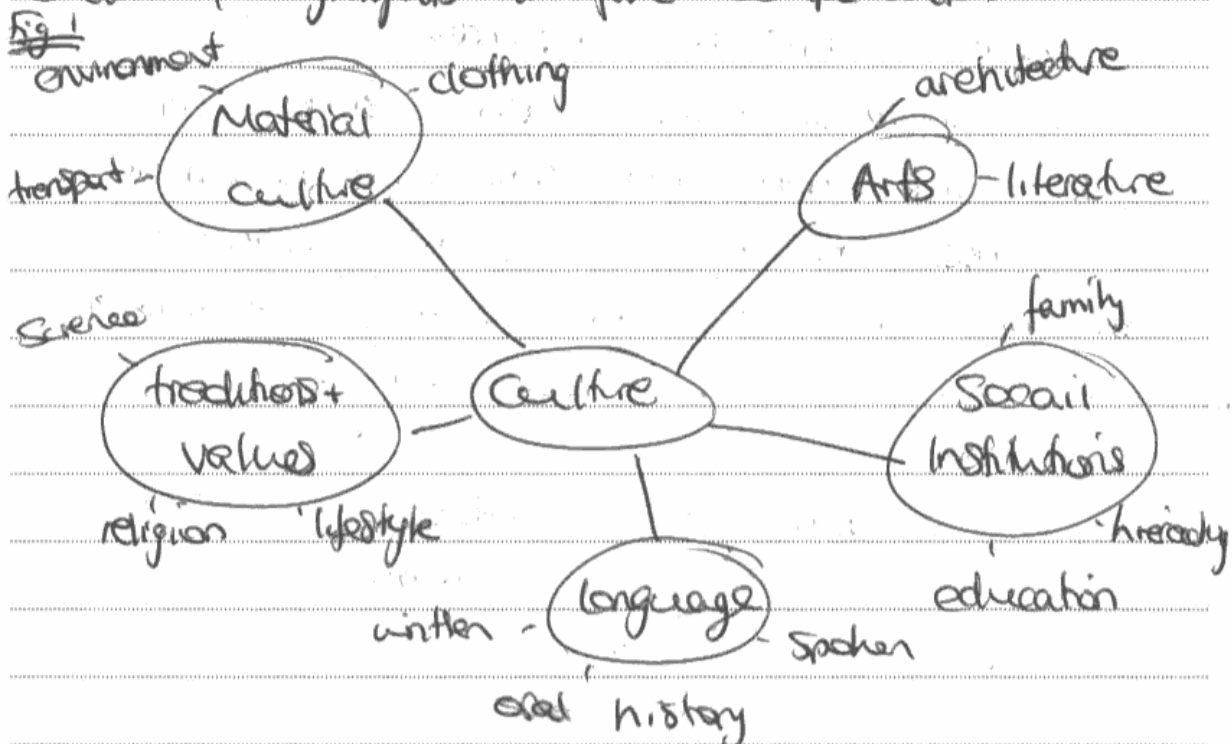 Fig 1
environment
clothing
Material
Culture
transport
architecture
Arts
literature
Science
traditions +
values
religion
lifestyle
Culture
family
Socail
Institutions
education
language
written
spoken
oral history